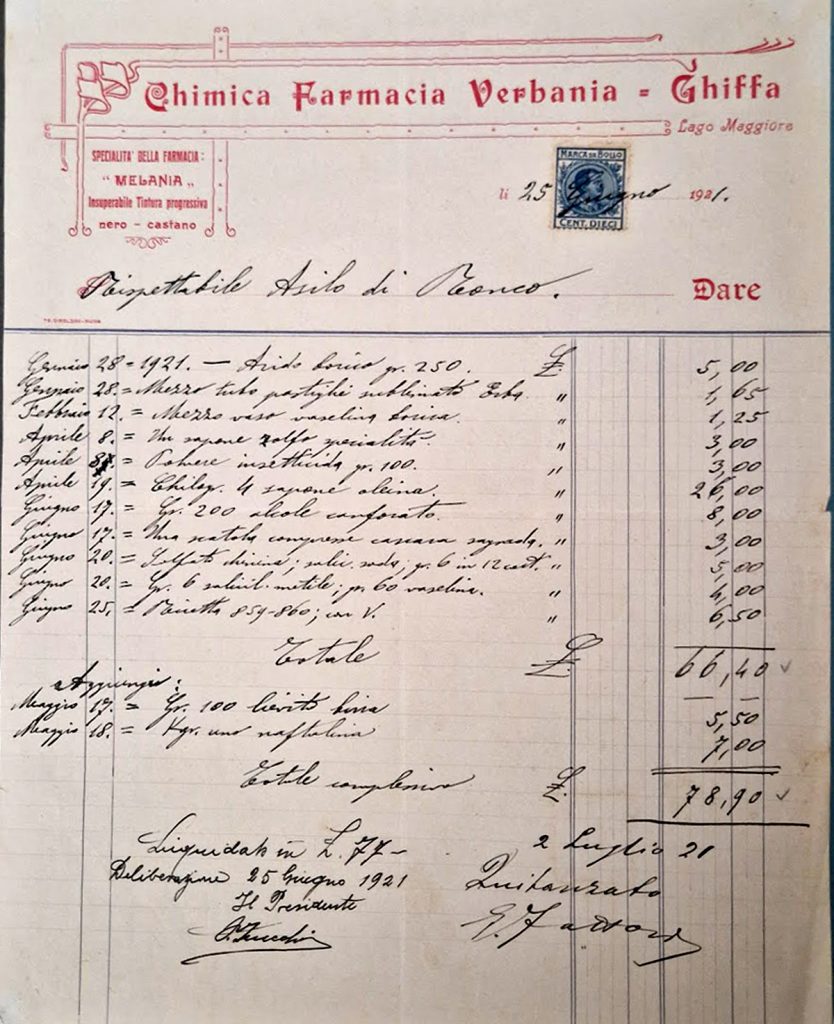 Chimica Farmacia Verbania = Ghiffa
Lago Maggiore
SPECIALITA' DELLA FARMACIA:
"MELANIA"
Insuperabile Tintura progressiva
nero - castano
MARCA DA BOLLO
CENT. DIECI
li 25 Giugno 1921.
Rispettabile Asilo di Ronco. Dare
Gennaio 28 = 1921. — Acido borico gr. 250. £ 5,00
Gennaio 28. = Mezzo tubo pastiglie sublimato Erba. " 1,65
Febbraio 12. = Mezzo vaso vaselina borica. " 1,25
Aprile 8. = Un sapone zolfo specialità. " 3,00
Aprile = Polvere insetticida gr. 100. " 3,00
Aprile 19. = Chilogr. 4 sapone oleina. " 26,00
Giugno 17. = Gr. 200 alcole canforato. " 8,00
Giugno 17. = Una scatola compresse cascara sagrada. " 3,00
Giugno 20. = Solfato chinina; salic. soda; gr. 6 in 12 cart. " 5,00
Giugno 20. = Gr. 6 salicil. metile; gr. 60 vaselina. " 4,00
Giugno 25. = Ricetta 859-860; con V. " 6,50
Totale £ 66,40
Aggiungi:
Maggio 17. = Gr. 100 lievito birra 5,50
Maggio 18. = Kgr. uno naftalina 7,00
Totale complessivo £ 78,90
Liquidato in L. 77-
2 Luglio 21
Deliberazione 25 Giugno 1921
Quitanzato
Il Presidente